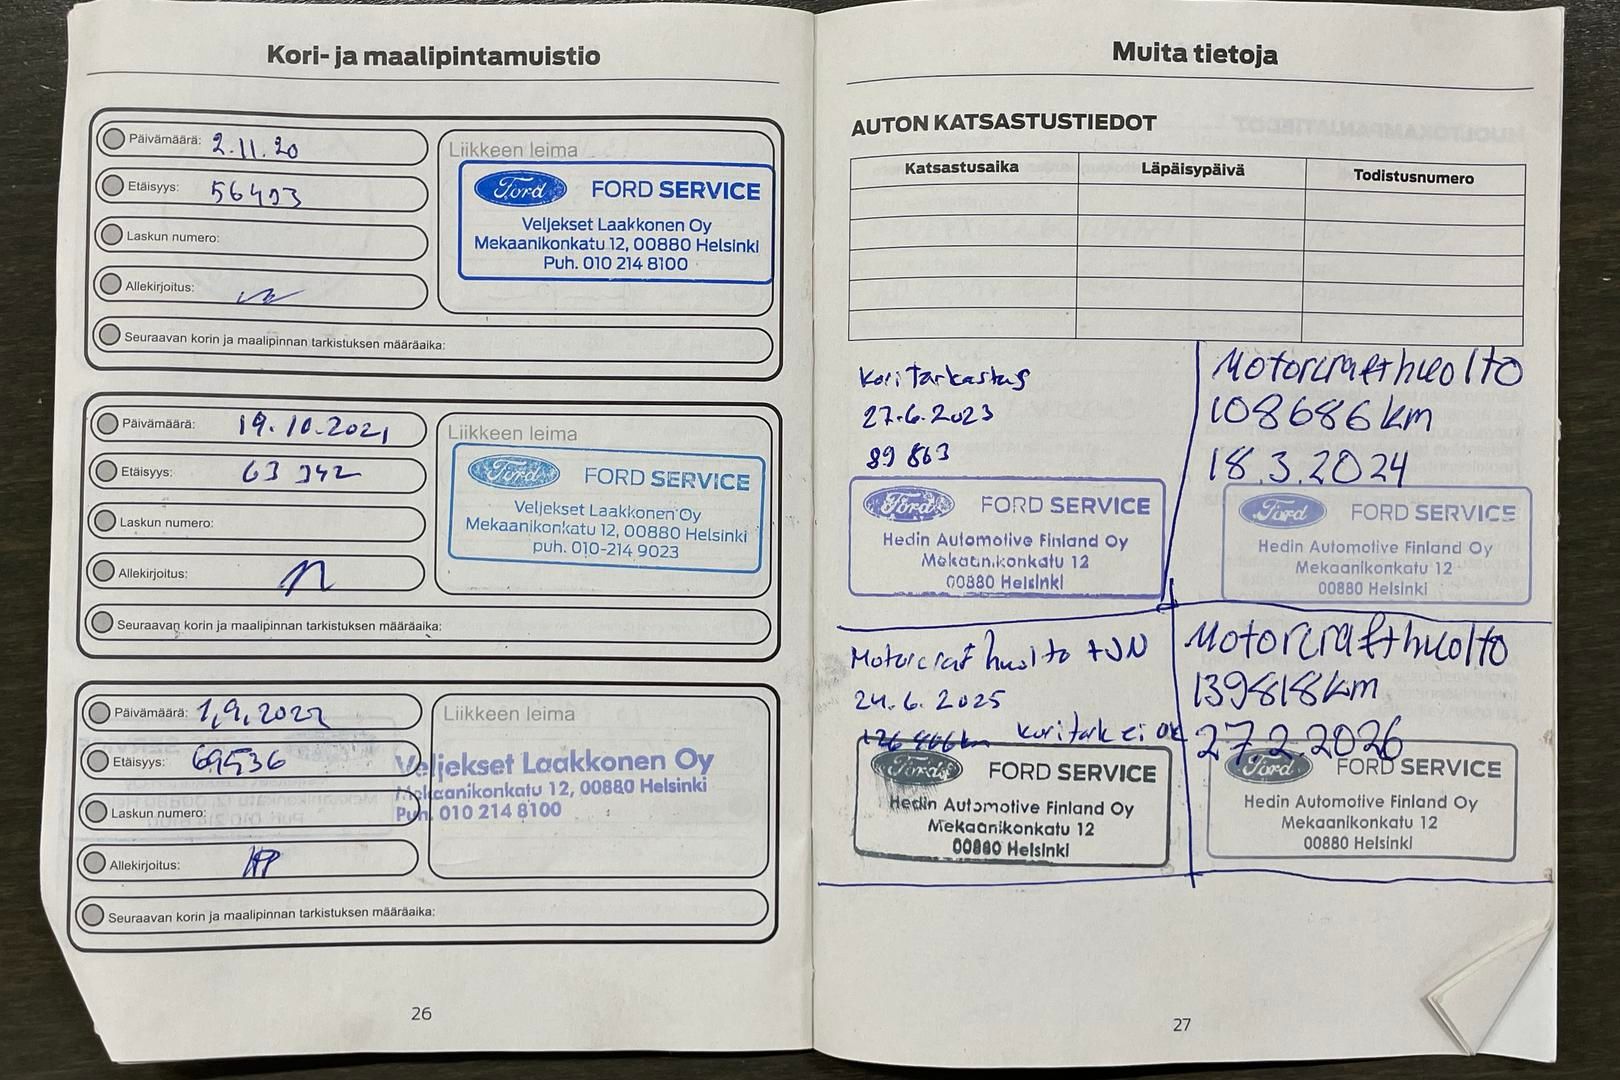 Kori- ja maalipintamuistio
Päivämäärä: 2.11.20
Etäisyys: 56493
Laskun numero:
Allekirjoitus:
Seuraavan korin ja maalipinnan tarkistuksen määräaika:
Liikkeen leima
Ford FORD SERVICE
Veljekset Laakkonen Oy
Mekaanikonkatu 12, 00880 Helsinki
Puh. 010 214 8100
Päivämäärä: 19.10.2021
Etäisyys: 63 342
Laskun numero:
Allekirjoitus:
Seuraavan korin ja maalipinnan tarkistuksen määräaika:
Liikkeen leima
Ford FORD SERVICE
Veljekset Laakkonen Oy
Mekaanikonkatu 12, 00880 Helsinki
puh. 010-214 9023
Päivämäärä: 1.9.2022
Etäisyys: 69536
Laskun numero:
Allekirjoitus:
Seuraavan korin ja maalipinnan tarkistuksen määräaika:
Liikkeen leima
Veljekset Laakkonen Oy
Mekaanikonkatu 12, 00880 Helsinki
Puh. 010 214 8100
26
Muita tietoja
AUTON KATSASTUSTIEDOT
Katsastusaika Läpäisypäivä Todistusnumero
Kori Tarkastus
27.6.2023
89 863
Ford FORD SERVICE
Hedin Automotive Finland Oy
Mekaanikonkatu 12
00880 Helsinki
Motorcrafthuolto
108686 km
18.3.2024
Ford FORD SERVICE
Hedin Automotive Finland Oy
Mekaanikonkatu 12
00880 Helsinki
Motorcraft huolto + JN
24.6.2025
km koritark ei ok
Ford FORD SERVICE
Hedin Automotive Finland Oy
Mekaanikonkatu 12
00880 Helsinki
Motorcrafthuolto
139818 km
27.2.2026
Ford FORD SERVICE
Hedin Automotive Finland Oy
Mekaanikonkatu 12
00880 Helsinki
27